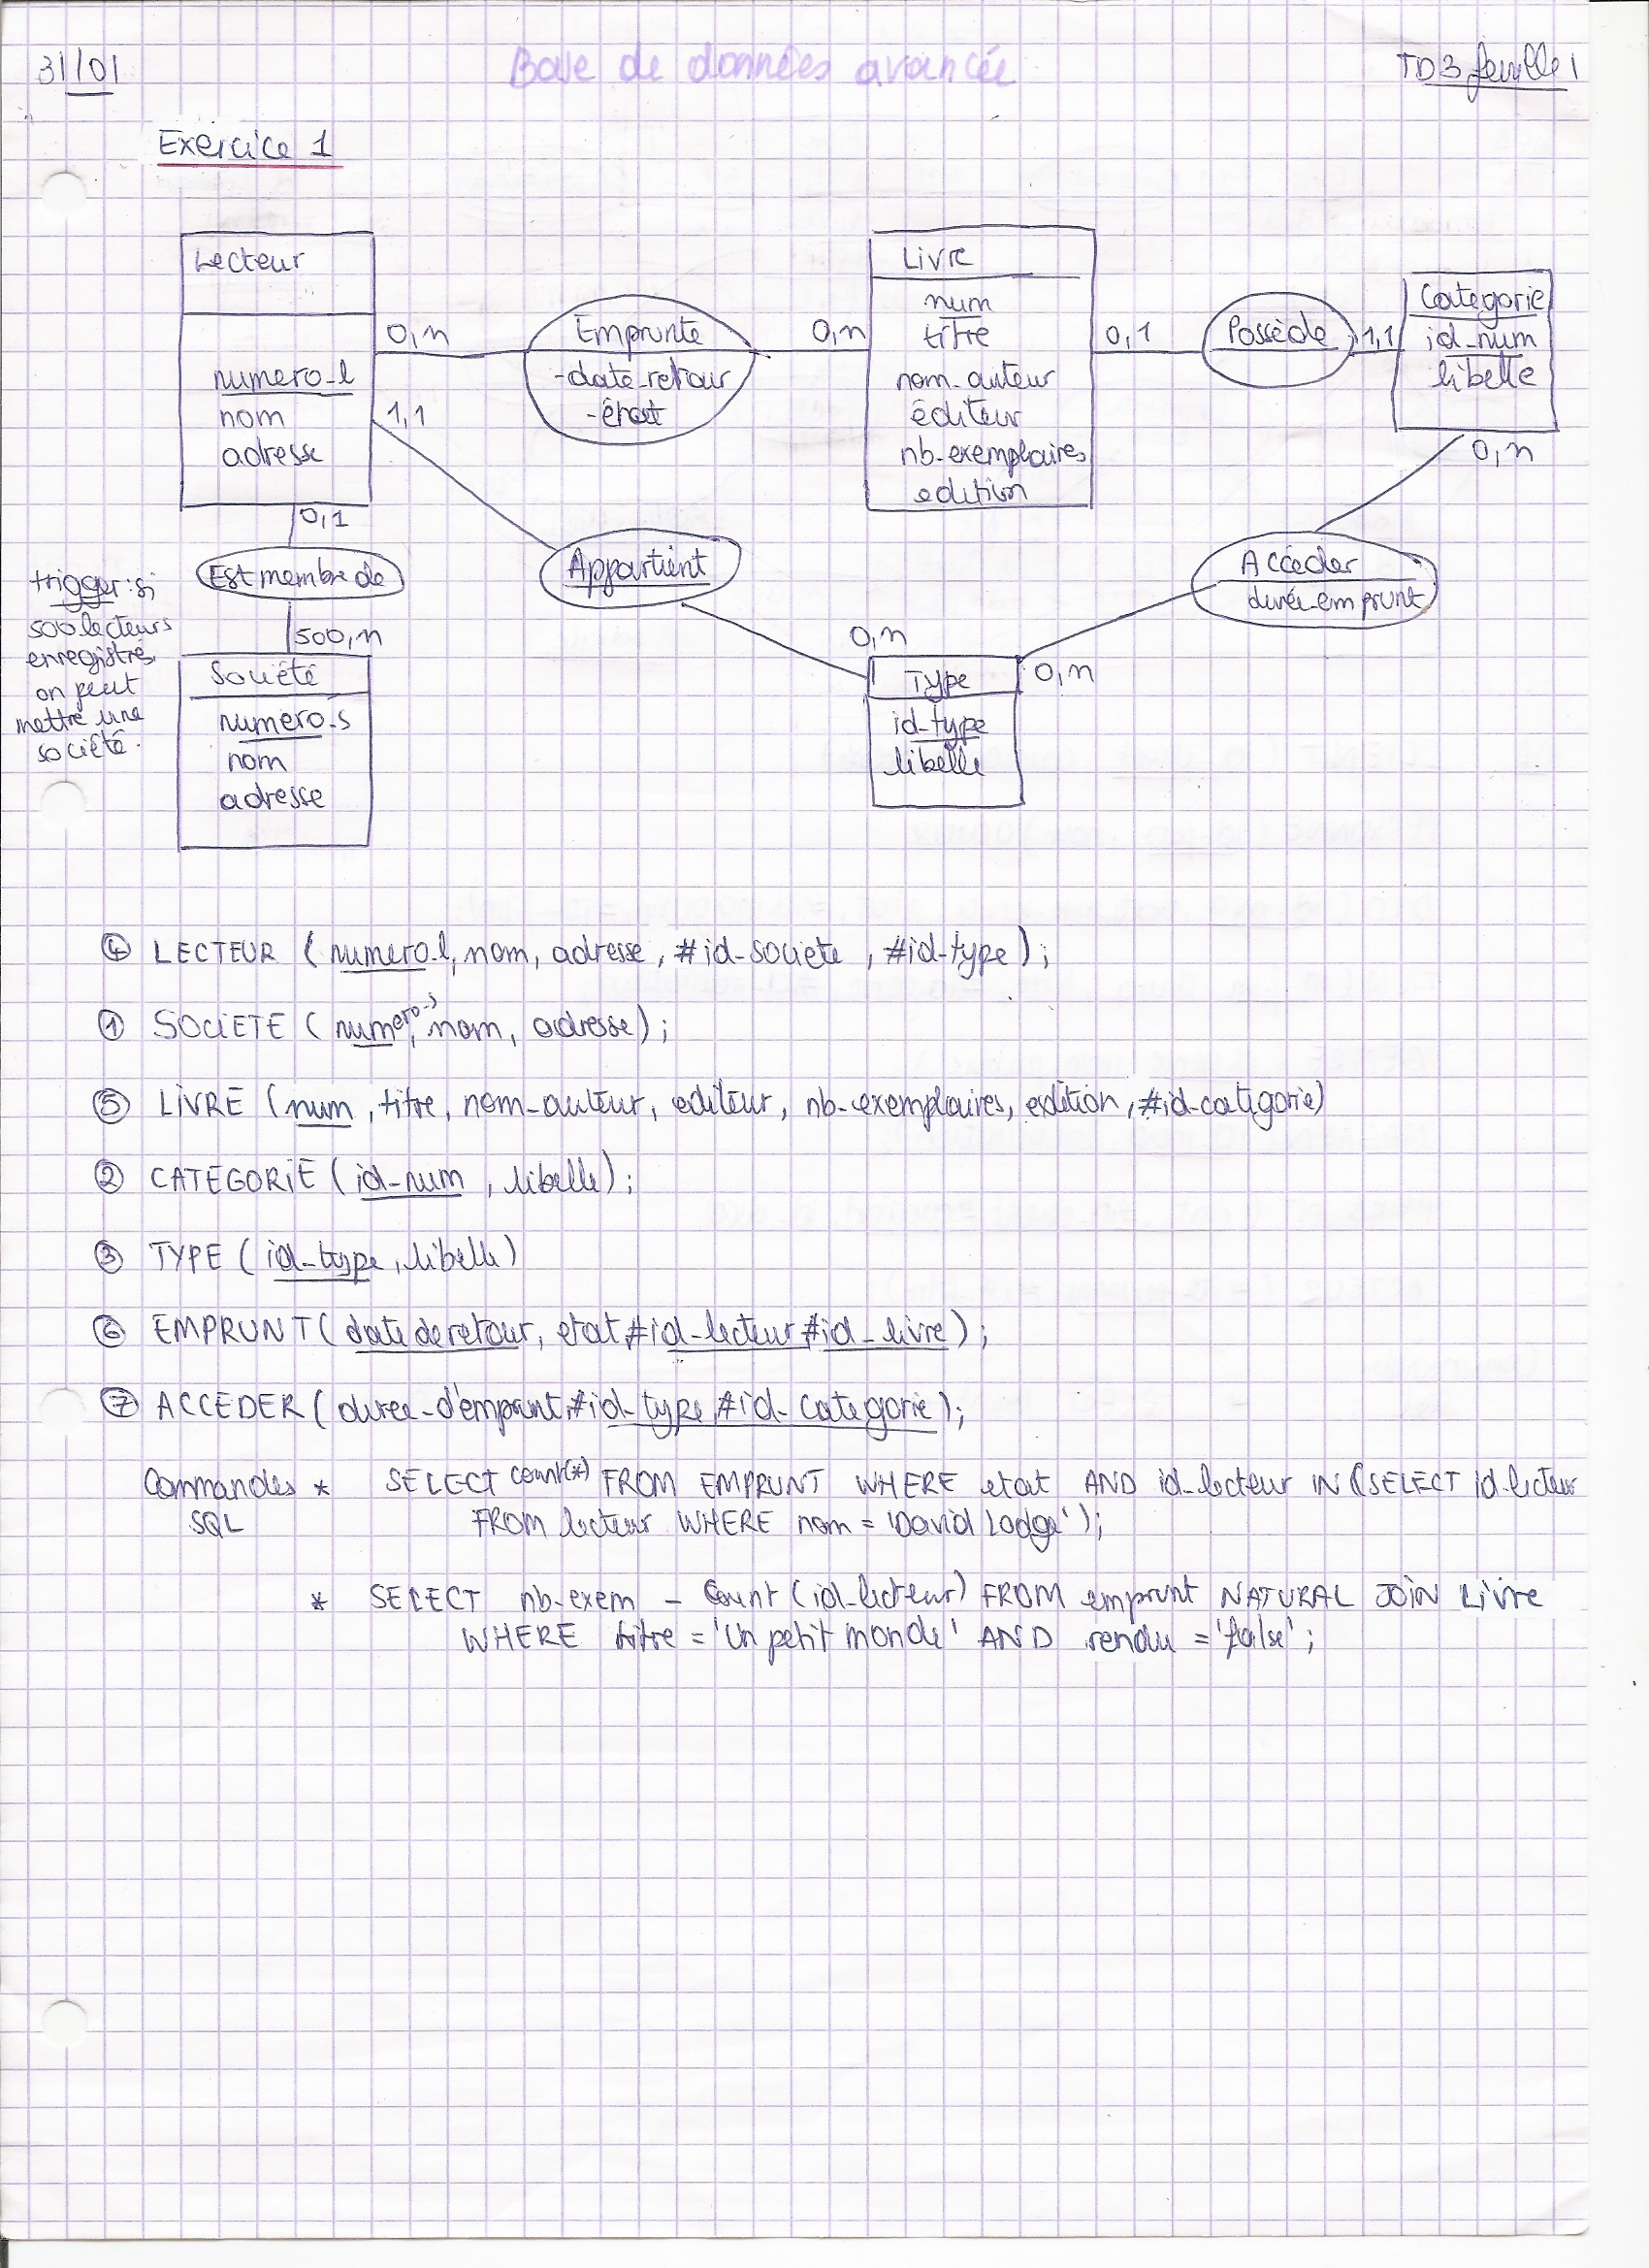 31/01
Base de données avancée
TD3 feuille 1
Exercice 1
Lecteur
numero_l
nom
adresse
0,n
Emprunte
-date_retour
-état
0,n
Livre
num
titre
nom_auteur
éditeur
nb_exemplaires
edition
0,1
Possède
1,1
Categorie
id_num
libelle
1,1
0,1
Est membre de
500,n
trigger: si
500 lecteurs
enregistrés
on peut
mettre une
société.
Société
numero_s
nom
adresse
Appartient
0,n
Type
id_type
libelle
0,n
Accéder
durée_emprunt
0,n
④ LECTEUR (numero_l, nom, adresse, #id_societe, #id_type);
① SOCIETE (numero_s, nom, adresse);
⑤ LIVRE (num, titre, nom_auteur, editeur, nb_exemplaires, edition, #id_categorie)
② CATEGORIE (id_num, libelle);
③ TYPE (id_type, libelle)
⑥ EMPRUNT (date de retour, etat, #id_lecteur, #id_livre);
⑦ ACCEDER (duree_d'emprunt, #id_type, #id_categorie);
Commandes * SELECT count(*) FROM EMPRUNT WHERE etat AND id_lecteur IN (SELECT id_lecteur
SQL FROM lecteur WHERE nom = 'David Lodge');
* SELECT nb_exem - Count (id_lecteur) FROM emprunt NATURAL JOIN Livre
WHERE titre = 'Un petit monde' AND rendu = 'false';